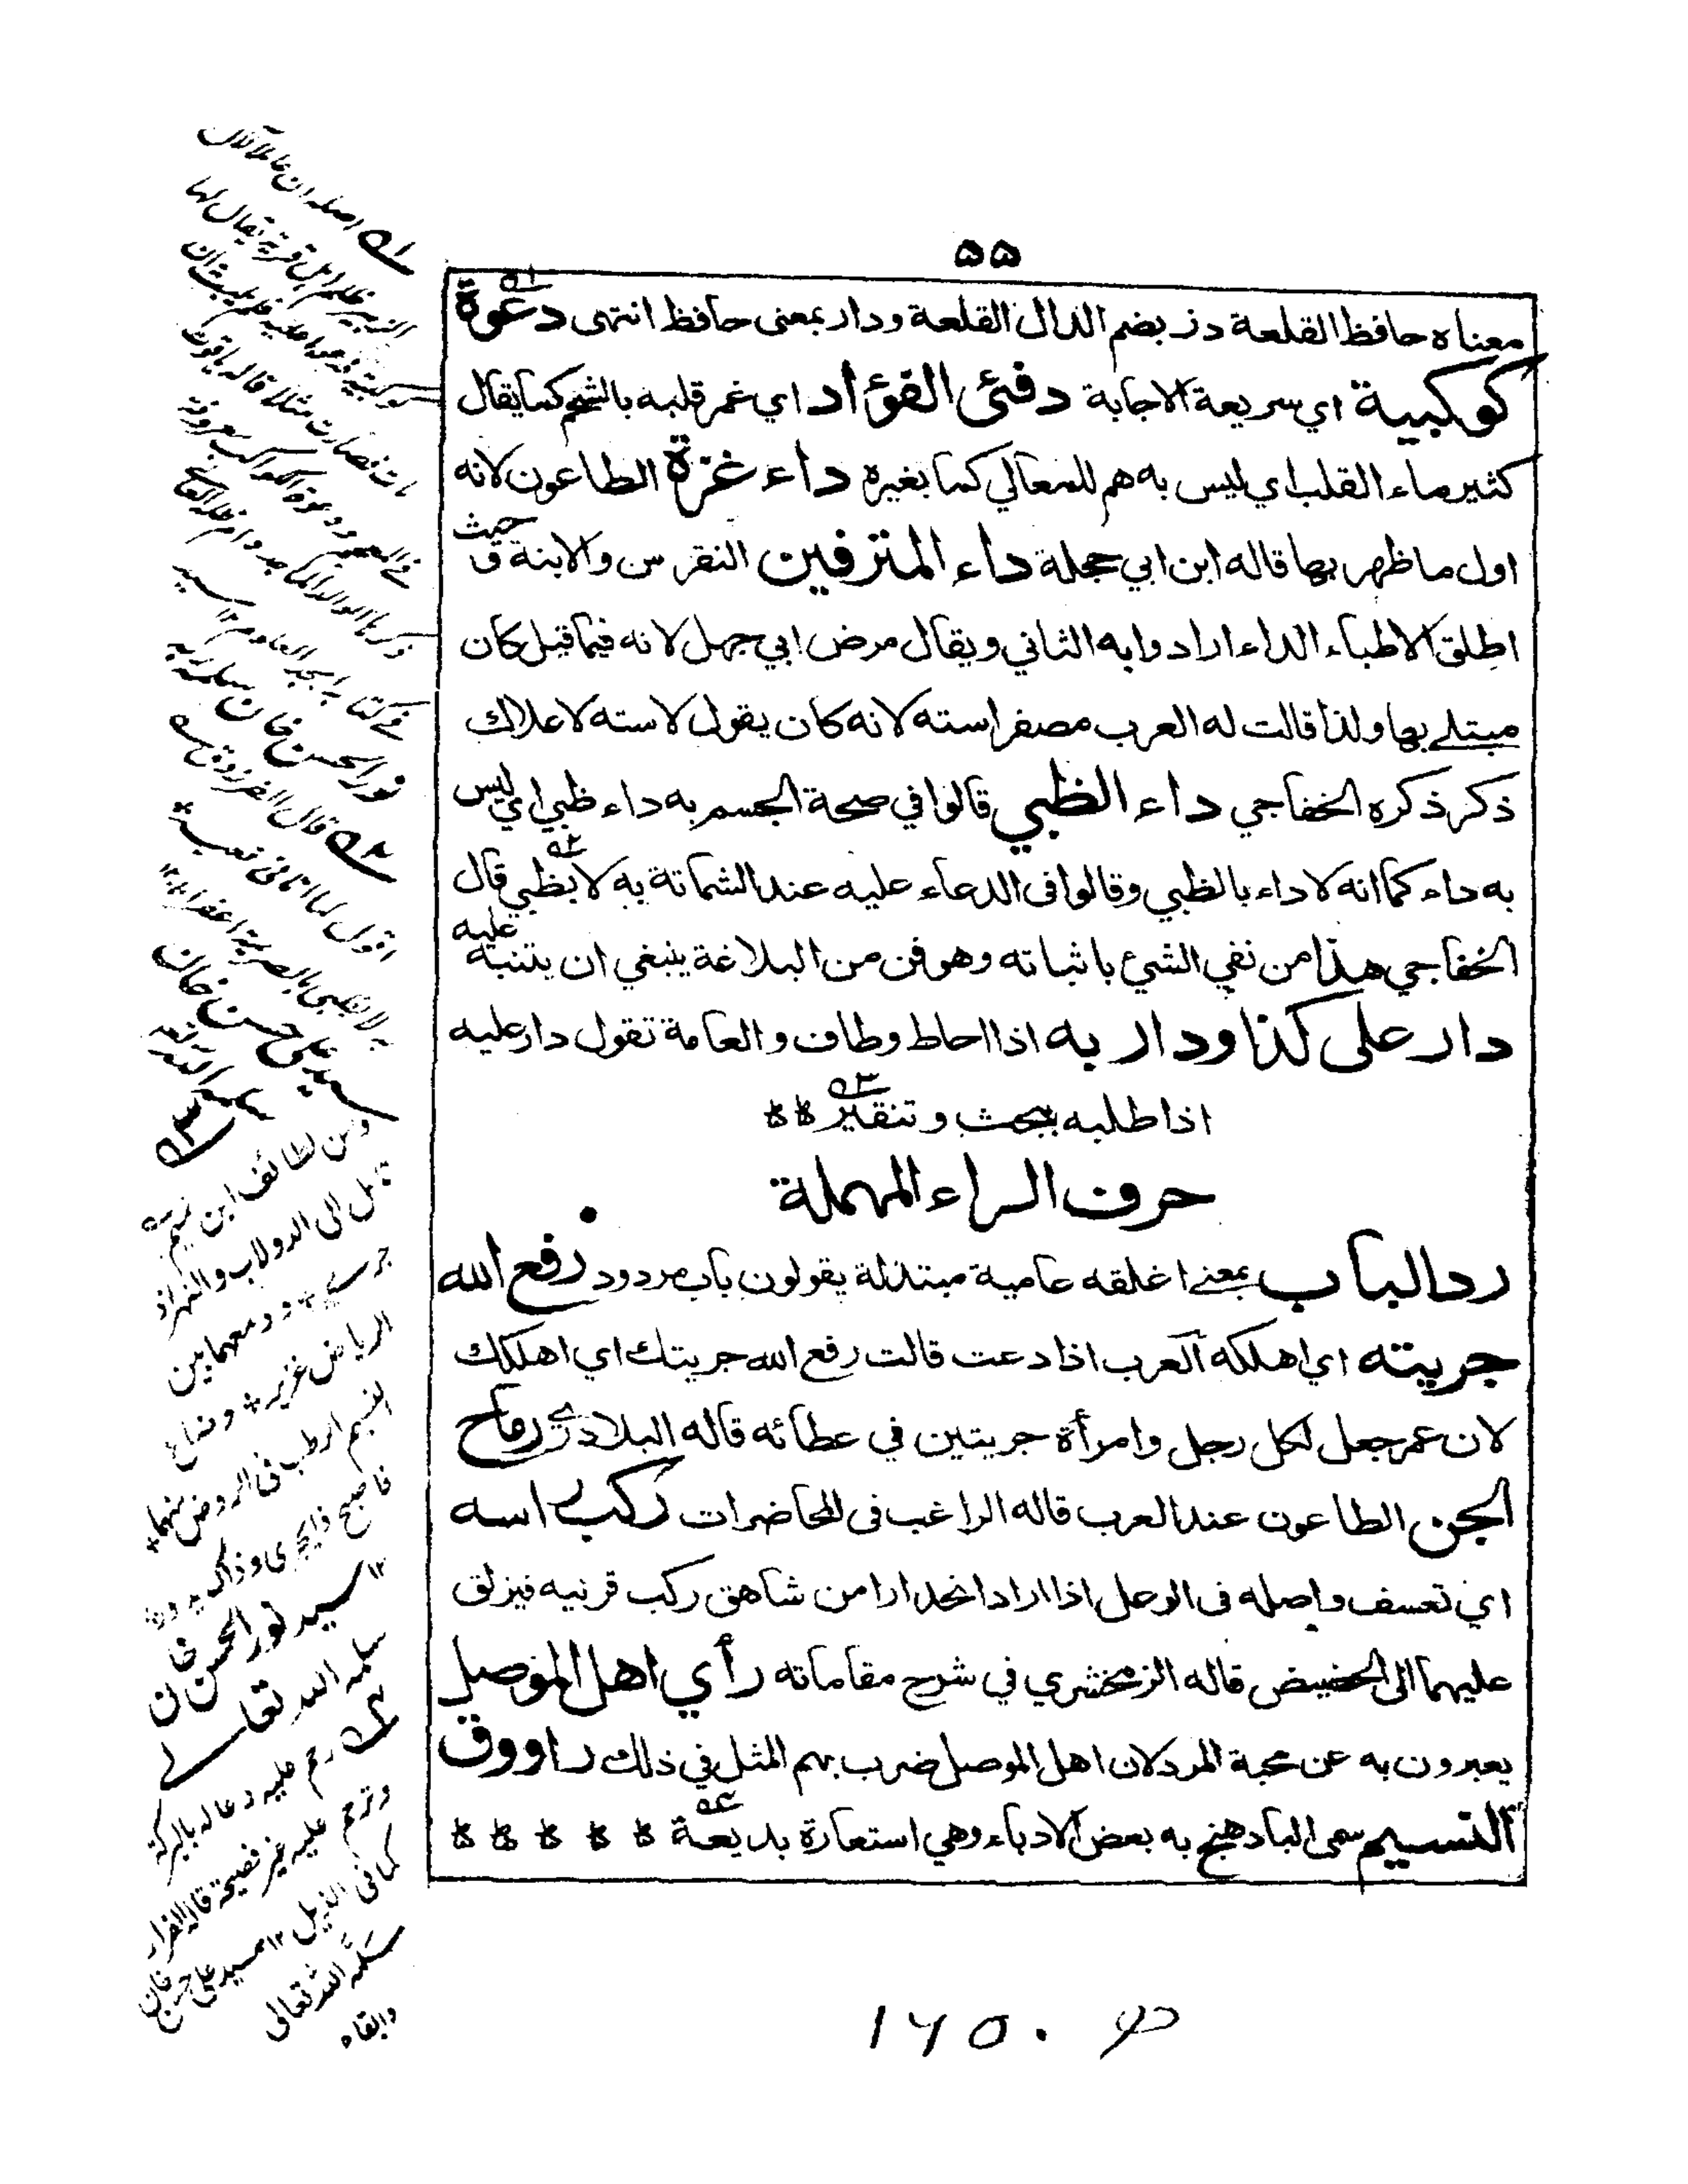 ۵۵
معناه حافظ القلعة دز بضم الدال القلعة ودار بمعنى حافظ انتهى دعوة
كوكبية اي سريعة الاجابة دفئى الفؤاد اي غمر قلبه بالشحم كما يقال
كثير ماء القلب اي ليس به هم للمعالي كما بغيره داء غزة الطاعون لانه
اول ما ظهر بها قاله ابن ابي حجلة داء المترفين النقرس والابنة ق حيث
اطلق الاطباء الداء ارادوا به الثاني ويقال مرض ابي جهل لانه فيما قيل كان
مبتلے بها ولذا قالت له العرب مصفر استه لانه كان يقول لاسته لا علاك
ذكر ذكره الخفاجي داء الظبي قالوا في صحة الجسم به داء ظبي اي ليس
به داء كما انه لا داء بالظبي وقالوا فى الدعاء عليه عند الشماتة به لا بظبي قال
الخفاجي هذا من نفي الشيء باثباته وهو فن من البلاغة ينبغي ان يتنبه عليه
دار على كذا ودار به اذا احاط وطاف والعامة تقول دار عليه
اذا طلبه ببحث وتنقير
حرف الراء المهملة
رد الباب بمعنے اغلقه عامية مبتذلة يقولون باب مردود رفع الله
جريته اي اهلكه العرب اذا دعت قالت رفع الله جريتك اي اهلكك
لان عمر جعل لكل رجل وامرأة جريتين في عطائه قاله البلاذري رماح
الجن الطاعون عند العرب قاله الراغب فى المحاضرات ركب راسه
اي تعسف واصله فى الوعل اذا اراد انحدارا من شاهق ركب قرنيه فيزلق
عليهما الى الحضيض قاله الزمخشري في شرح مقاماته رأي اهل الموصل
يعبرون به عن محبة المرد لان اهل الموصل ضرب بهم المثل في ذلك راووق
النسيم سمى البادهنج به بعض الادباء وهي استعارة بديعة
ه١ اصله ان عاملا لآل
الزبير ظلم اهل قرية يقال لها
كوكبية فدعوا عليه فلم يلبث ان
مات فصارت مثلا قاله ياقوت
نور الحسن خان سلمه ربه
ه٢ قال الفرزدق
اقول لما اتانى نعيه
به لا بظبى بالصريمة اعفرا ١٢
سيد علي حسن خان
سلمه الله تعالى
ه٣
ومن لطائف ابن تميم
الرياض غزير
النسيم الرطب فى الروض بينهما
سيد نور الحسن خان
سلمه الله تعالے
ه٤ رحم عليه دعا له بالبركة
وترحم عليه غير فصيحة قاله الفراء
كما فى الذيل ١٢ سيد علي حسن خان
سلمه الله تعالى
وابقاه
١٦٥٠